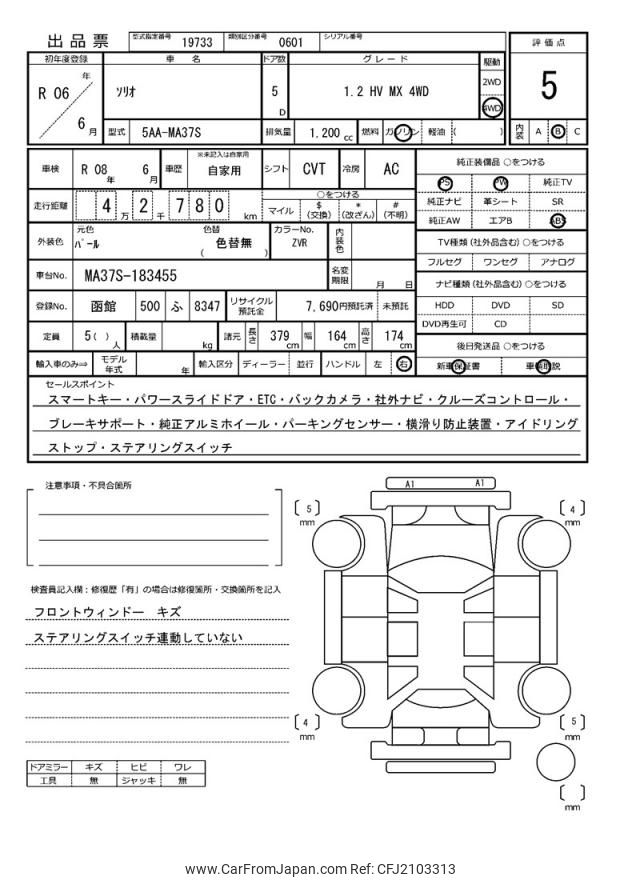 出品票 型式指定番号 19733 類別区分番号 0601 シリアル番号
評価点
5
内装 A B C
初年度登録 車名 ドア数 グレード 駆動
R 06 年 6 月
ソリオ
5 D
1.2 HV MX 4WD
2WD
4WD
型式 5AA-MA37S 排気量 1,200 cc 燃料 ガソリン 軽油 ( )
車検 R 08 年 6 月 車歴 ※未記入は自家用 自家用 シフト CVT 冷房 AC
走行距離 4 万 2 千 7 8 0 km
○をつける
マイル $(交換) *(改ざん) #(不明)
外装色 元色 パール 色替 ( 色替無 ) カラーNo. ZVR 内装色
車台No. MA37S-183455 名変期限 月 日
登録No. 函館 500 ふ 8347 リサイクル預託金 7,690円預託済 未預託
定員 5( ) 人 積載量 kg 諸元 長さ 379 cm 幅 164 cm 高さ 174 cm
輸入車のみ⇒ モデル年式 年 輸入区分 ディーラー 並行 ハンドル 左 右
純正装備品 ○をつける
PS PW 純正TV
純正ナビ 革シート SR
純正AW エアB ABS
TV種類 (社外品含む) ○をつける
フルセグ ワンセグ アナログ
ナビ種類 (社外品含む) ○をつける
HDD DVD SD
DVD再生可 CD
後日発送品 ○をつける
新車保証書 車輌取説
セールスポイント
スマートキー・パワースライドドア・ETC・バックカメラ・社外ナビ・クルーズコントロール・
ブレーキサポート・純正アルミホイール・パーキングセンサー・横滑り防止装置・アイドリング
ストップ・ステアリングスイッチ
注意事項・不具合箇所
検査員記入欄：修復歴「有」の場合は修復箇所・交換箇所を記入
フロントウィンドー キズ
ステアリングスイッチ連動していない
ドアミラー キズ ヒビ ワレ
工具 無 ジャッキ 無
A1 A1
5 mm
4 mm
4 mm
5 mm
mm
www.CarFromJapan.com Ref: CFJ2103313